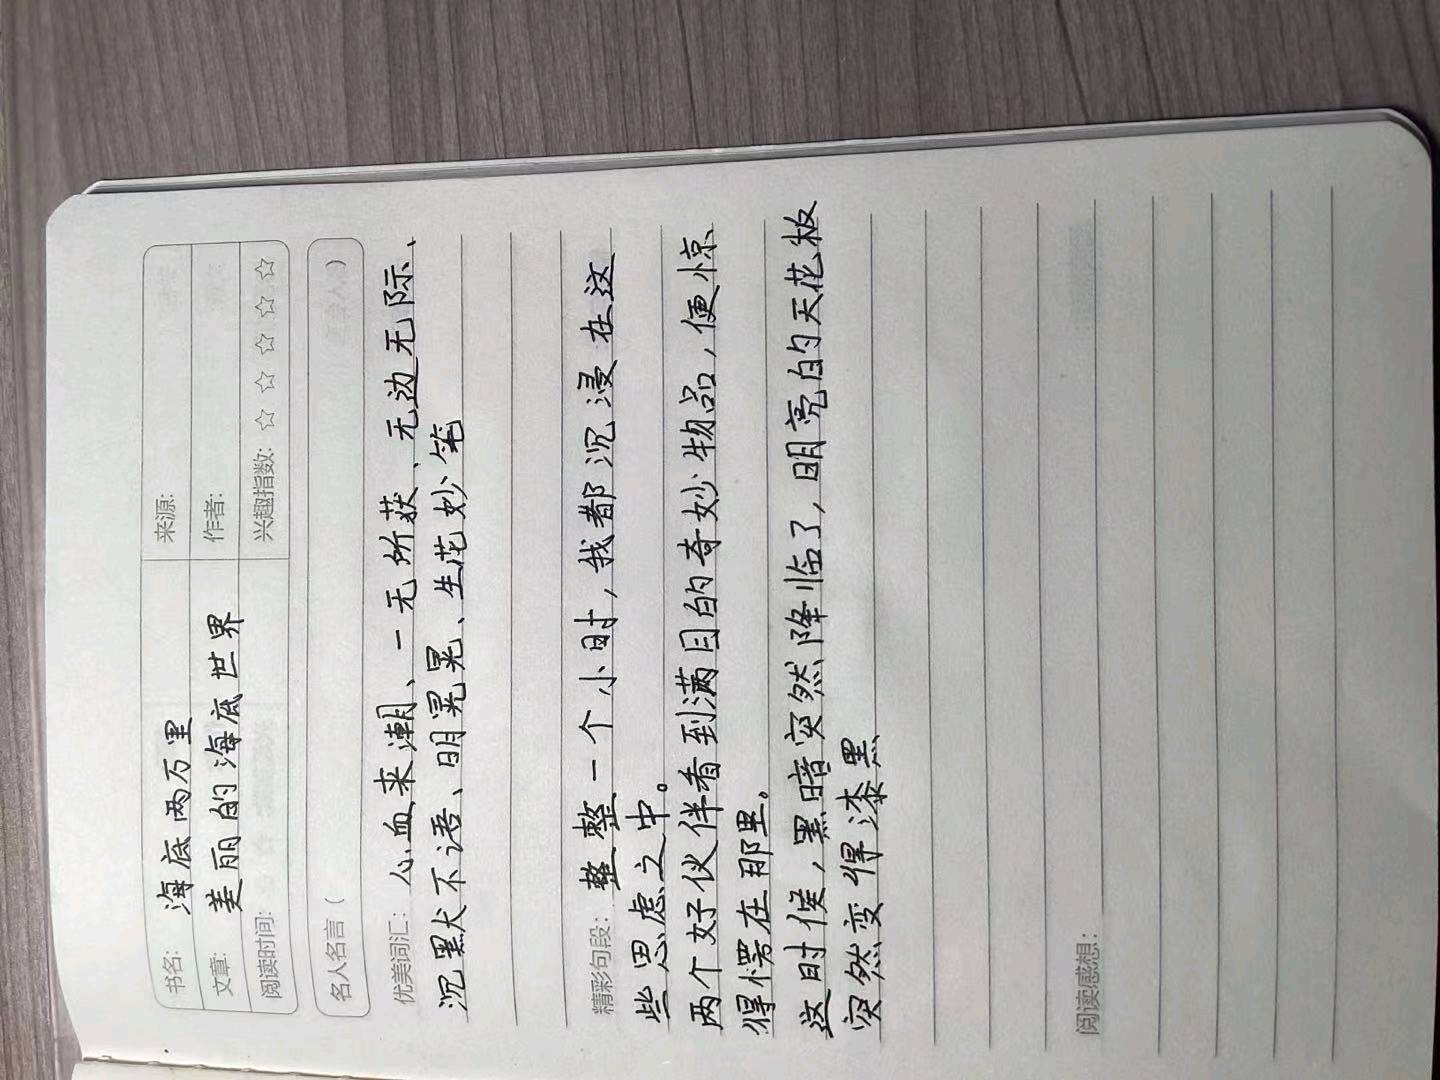 书名: 海底两万里 来源:
文章: 美丽的海底世界 作者:
阅读时间: 兴趣指数: ☆ ☆ ☆ ☆ ☆
名人名言 ( )
优美词汇: 心血来潮、一无所获、无边无际、
沉默犬不语、明晃晃、生花妙笔
精彩句段: 整整一个小时，我都沉浸在这
些思虑之中。
两个好伙伴看到满目的奇妙物品，便惊
得愣在那里。
这时候，黑暗突然降临了，明亮的天花板
突然变得漆黑
阅读感想: